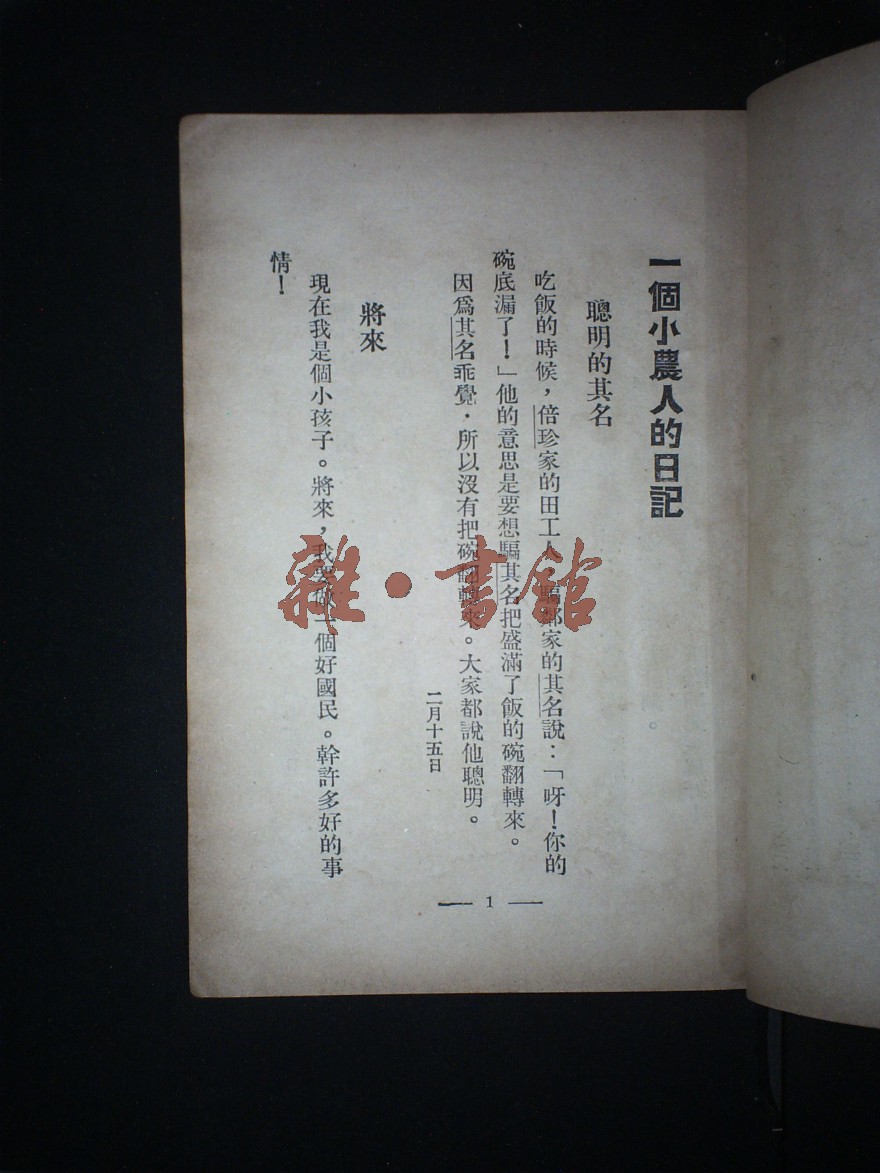 一個小農人的日記
聰明的其名
吃飯的時候，倍珍家的田工人，騙鄰家的其名說：「呀！你的
碗底漏了！」他的意思是要想騙其名把盛滿了飯的碗翻轉來。
因爲其名乖覺．所以沒有把碗翻轉來。大家都說他聰明。
二月十五日
將來
現在我是個小孩子。將來，我要做一個好國民。幹許多好的事
情！
— 1 —
雜·書館